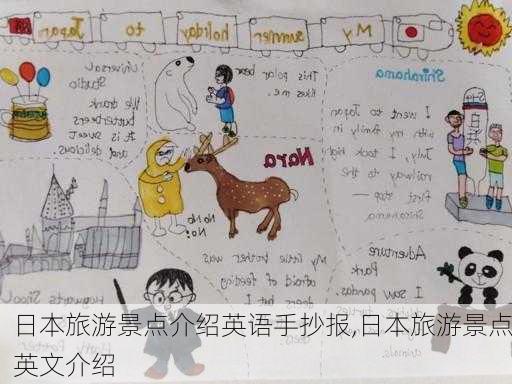 My summer holiday to Japan
Shirahama
I went to Japan
with my family in
July, I took high
railway to the
first stop —
Shirahama.
This polar bear
me.
Universal
Studio
We drank
butterbeers
It is sweet
and delicious
Nara
No. No
No!
My little brother was
afraid of feeding
deers but I
Adventure
Park
I saw pandas
animals.
Hogwarts School
Harry Potter
日本旅游景点介绍英语手抄报,日本旅游景点
英文介绍